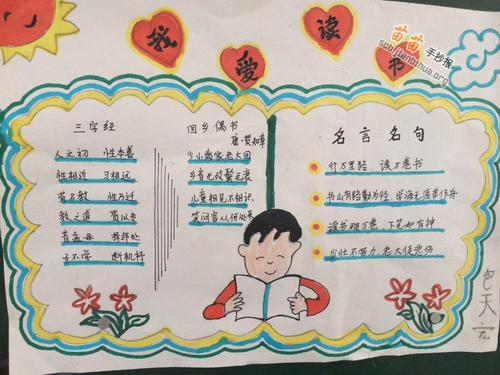 我爱读书
苗苗手抄报
scb.jianbihua.org
三字经
人之初 性本善
性相近 习相远
苟不教 性乃迁
教之道 贵以专
昔孟母 择邻处
子不学 断机杼
回乡偶书
唐·贺知章
少小离家老大回
乡音无改鬓毛衰
儿童相见不相识
笑问客从何处来
名言名句
行万里路，读万卷书
书山有路勤为径，学海无涯苦作舟
读书破万卷，下笔如有神
少壮不努力，老大徒悲伤